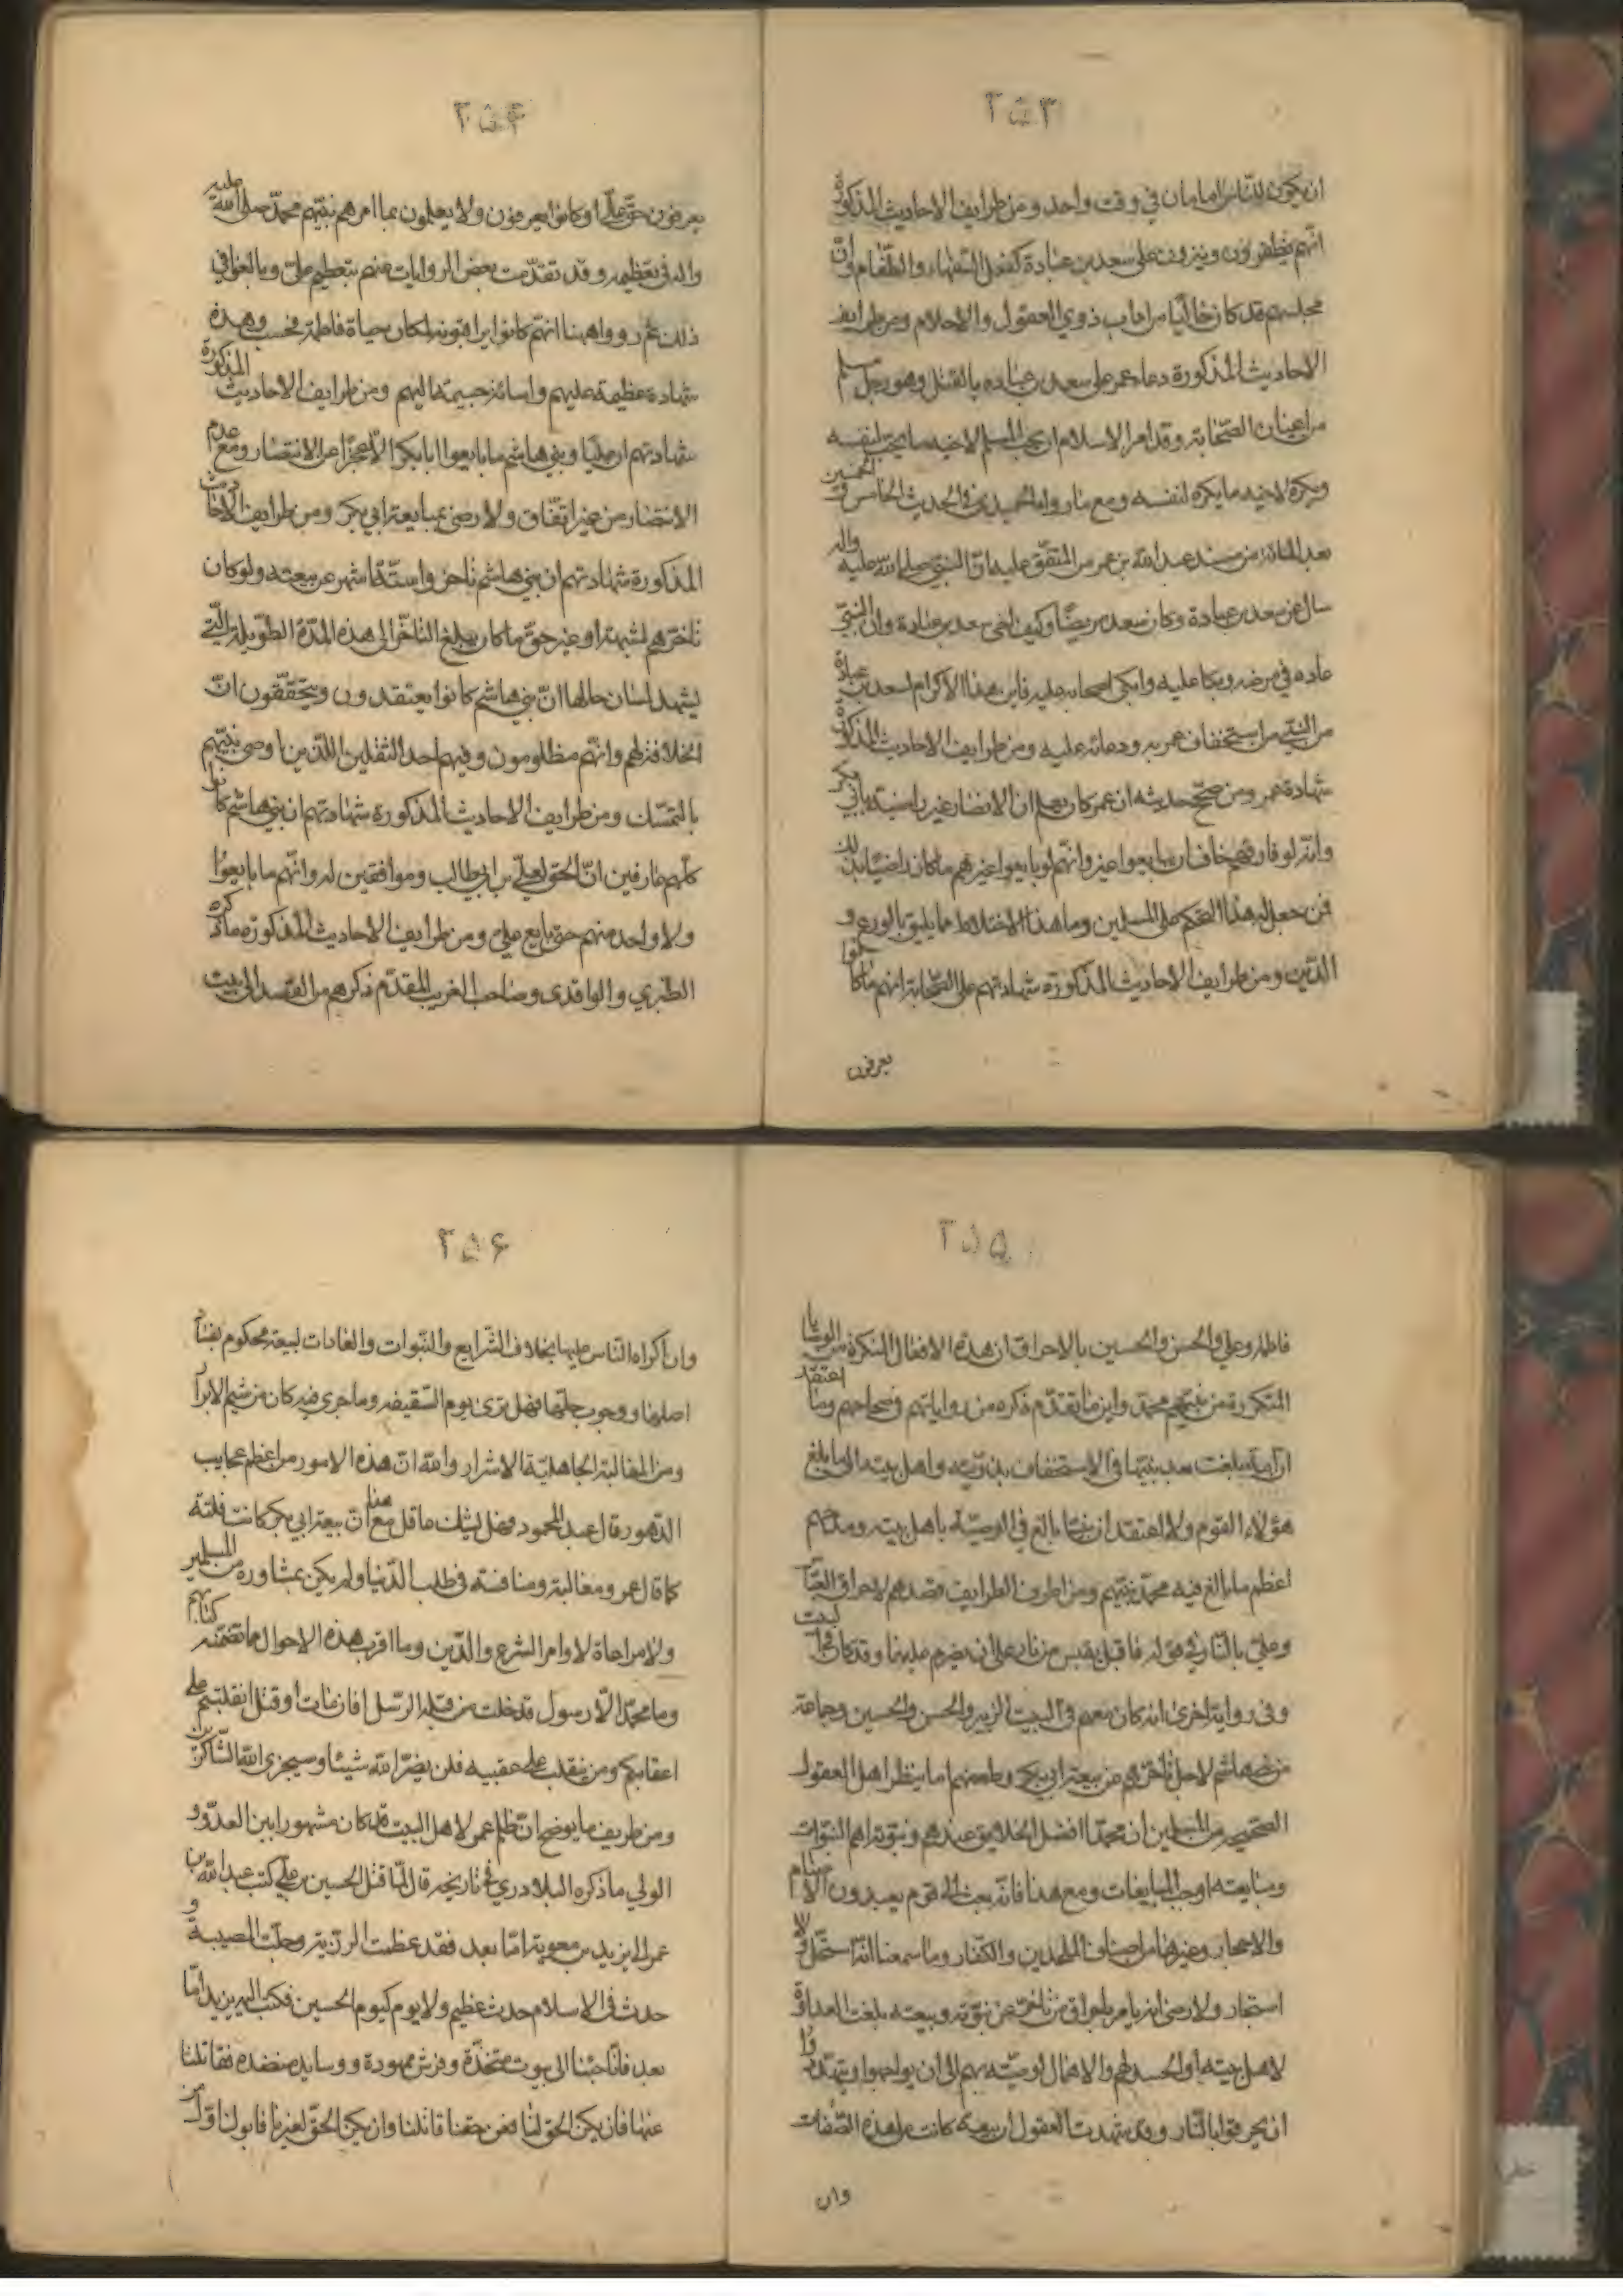 ۲۵۳
ان يكون للناس امامان في وقت واحد ومن طرايف الاحاديث المذكورة
انهم يظفرون وينزون على سعد بن عبادة كفعل السفهاء والطغام وان
مجلسهم قد كان خاليا من اداب ذوي العقول والاحلام ومن طرايف
الاحاديث المذكورة دعاء عمر على سعد بن عباده بالقتل وهو رجل مسلم
من اعيان الصحابة وقد امر الاسلام ان يحب المسلم لاخيه ما يحب لنفسه
ويكره لاخيه ما يكره لنفسه ومع ما رواه الحميدي في الحديث الخامس والخمسين
بعد المائة من مسند عبد الله بن عمر من المتفق عليه ان النبي صلى الله عليه واله
سال عن سعد بن عبادة وكان سعد مريضا وكيف اخي سعد بن عبادة وان النبي
عاده في مرضه وبكا عليه وابكى اصحابه عليه فاين هذا الاكرام لسعد بن عبادة
من النبي من استخفاف عمر به ودعائه عليه ومن طرايف الاحاديث المذكورة
شهادة عمر ومن صحح حديثه ان عمر كان يعلم ان الانصار غير راضية بابي بكر
وانه لو فارقهم خاف ان يبايعوا غيره وانهم لو بايعوا غيرهم ما كان راضيا بذلك
فمن جعل له هذا التحكم على المسلمين وما هذا الاختلاط مما يليق بالورع و
الدين ومن طرايف الاحاديث المذكورة شهادتهم على الصحابة انهم ما كانوا
يعرفون
۲۵۴
يعرفون حق علي او كانوا يعرفون ولا يعلمون بما امرهم نبيهم محمد صلى الله عليه
واله في تعظيمه وقد تقدمت بعض الروايات عنهم بتعظيم علي وبالغوا في
ذلك ثم رووا هيهنا انهم كانوا يراقبونه لمكان حياة فاطمة فحسب وهذه
شهادة عظيمة عليهم واسائة جسيمة اليهم ومن طرايف الاحاديث المذكورة
شهادتهم ان عليا وبني هاشم ما بايعوا ابا بكر الا عجزا عن الانتصار ومع عدم
الانتصار من غير اتفاق ولا رضى بمبايعة ابي بكر ومن طرايف الاحاديث
المذكورة شهادتهم ان بني هاشم تاخروا ستة اشهر عن بيعته ولو كان
تاخرهم لشبهة او غير حق ما كان يبلغ التاخر الى هذه المدة الطويلة التي
يشهد لسان حالها ان بني هاشم كانوا يعتقدون ويتحققون ان
الخلافة لهم وانهم مظلومون وفيهم احد الثقلين اللذين اوصى نبيهم
بالتمسك ومن طرايف الاحاديث المذكورة شهادتهم ان بني هاشم كانوا
كلهم عارفين ان الحق لعلي بن ابي طالب وموافقين له وانهم ما بايعوا
ولا واحد منهم حتى بايع علي ومن طرايف الاحاديث المذكورة ما ذكره
الطبري والواقدي وصاحب الغرر المقدم ذكرهم من القصد الى بيت
۲۵۵
فاطمة وعلي والحسن والحسين بالاحراق اين هذه الافعال المنكرة من الوصايا
المتكررة من نبيهم محمد واين ما تقدم ذكره من رواياتهم في صحاحهم وما اعتقد
ان امة بلغت بعد نبيها في الاستخفاف بذريته واهل بيته الى ما بلغ
هؤلاء القوم ولا اعتقد ان نبيا بالغ في الوصية باهل بيته ومدحهم
اعظم مما بالغ فيه محمد نبيهم ومن اطرف الطرايف قصدهم لاحراق العباس
وعلي بالنار في قوله فاقبل بقبس من نار على ان يضرم عليهما وقد كان في البيت
وفي رواية اخرى انه كان معهم في البيت الزبير والحسن والحسين وجماعة
من بني هاشم لاجل تاخرهم عن بيعة ابي بكر وطعنهم اما ينظر اهل العقول
الصحيحة من المسلمين ان محمدا افضل الخلايق عندهم ونبوته اهم النبوات
ومبايعته اوجب المبايعات ومع هذا فانه بعث الى قوم يعبدون الاصنام
والاحجار وغيرهما من اصناف الملحدين والكفار وما سمعنا انه استحل ولا
استجار ولا رضى انه يامر باحراق من تاخر عن نبوته وبيعته بلغت العداوة
لاهل بيته والحسد لهم والاهمال لوصيته بهم الى ان يواجهوا ويتهددوا
ان يحرقوا بالنار وقد شهدت العقول ان بيعة كانت على هذه الصفات
وان
۲۵۶
وان اكراه الناس عليها بخلاف الشرايع والنبوات والعادات لبيعة محكوم بفساد
اصلها ووجوب حلها فهل ترى يوم السقيفة وما جرى فيه كان من شيم الابرار
ومن المغالبة الجاهلية الاشرار والله ان هذه الامور من اعظم عجايب
الدهور قال عبد المحمود وهل يشك عاقل مع هذا ان بيعة ابي بكر كانت فلتة
كما قال عمر ومغالبة ومنافسة في طلب الدنيا ولم يكن بمشاورة من المسلمين
ولا مراعاة لاوامر الشرع والدين وما اقرب هذه الاحوال مما تضمنه كتابهم
وما محمد الا رسول قد خلت من قبله الرسل افان مات او قتل انقلبتم على
اعقابكم ومن ينقلب على عقبيه فلن يضر الله شيئا وسيجزي الله الشاكرين
ومن طريف ما يوضح ان ظلم عمر لاهل البيت قد كان مشهورا بين العدو و
الولي ما ذكره البلادري في تاريخه قال لما قتل الحسين بن علي كتب عبد الله بن
عمر الى يزيد بن معوية اما بعد فقد عظمت الرزية وجلت المصيبة و
حدث في الاسلام حدث عظيم ولا يوم كيوم الحسين فكتب اليه يزيد اما
بعد فانا جئنا الى بيوت متخذة وفرش ممهودة ووسايد منضدة فقاتلنا
عنها فان يكن الحق لنا فعن حقنا قاتلنا وان يكن الحق لغيرنا فابوك اول من